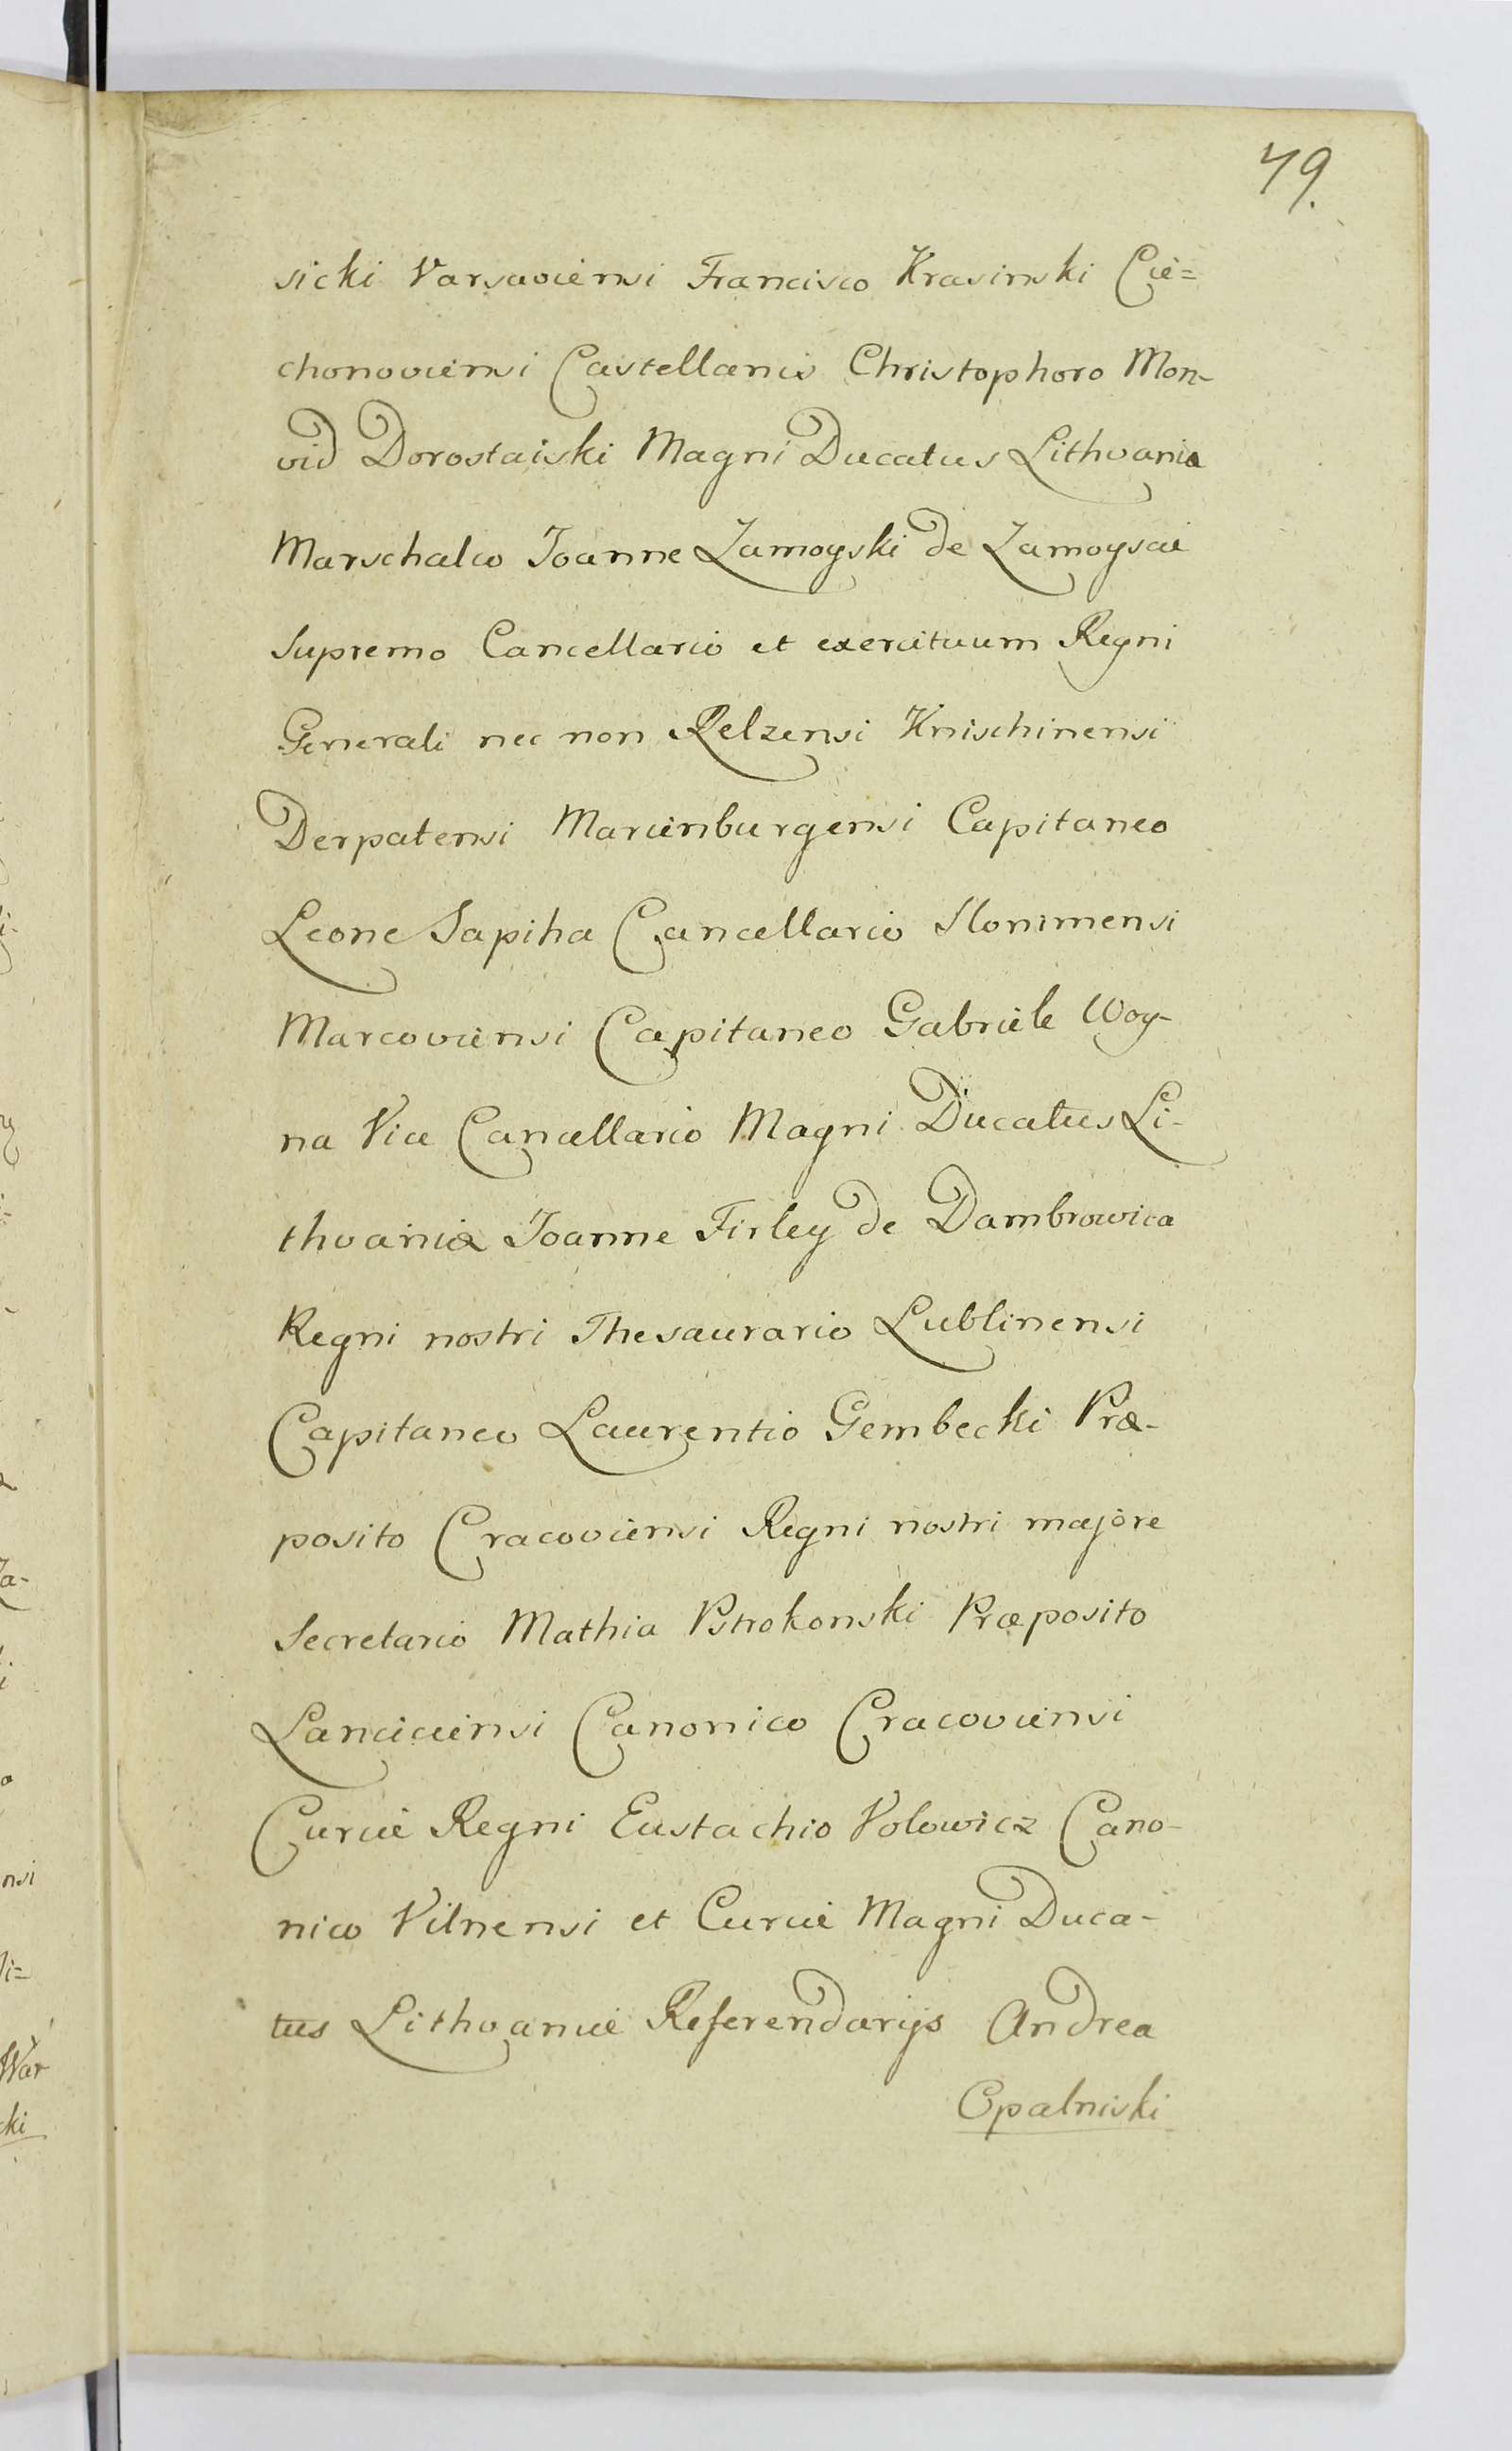 79.
sicki Varsaviensi Francisco Krasinski Cie=
chonoviensi Castellanis Christophoro Mon-
vid Dorostaiski Magni Ducatus Lithvaniæ
Marschalco Joanne Zamoyski de Zamoyscie
Supremo Cancellario et exercituum Regni
Generali nec non Relzensi Knischinensi
Derpatensi Marienburgensi Capitaneo
Leone Sapiha Cancellario Slonimensi
Marcoviensi Capitaneo Gabriele Woy-
na Vice Cancellario Magni Ducatus Li-
thvaniæ Joanne Firley de Dambrowica
Regni nostri Thesaurario Lublinensi
Capitaneo Laurentio Gembecki Præ-
posito Cracoviensi Regni nostri majore
Secretario Mathia Pstrokonski Præposito
Lanciciensi Canonico Cracoviensi
Curiæ Regni Eustachio Volowicz Cano-
nico Vilnensi et Curiæ Magni Duca-
tus Lithvaniæ Referendarijs Andrea
Opalniski